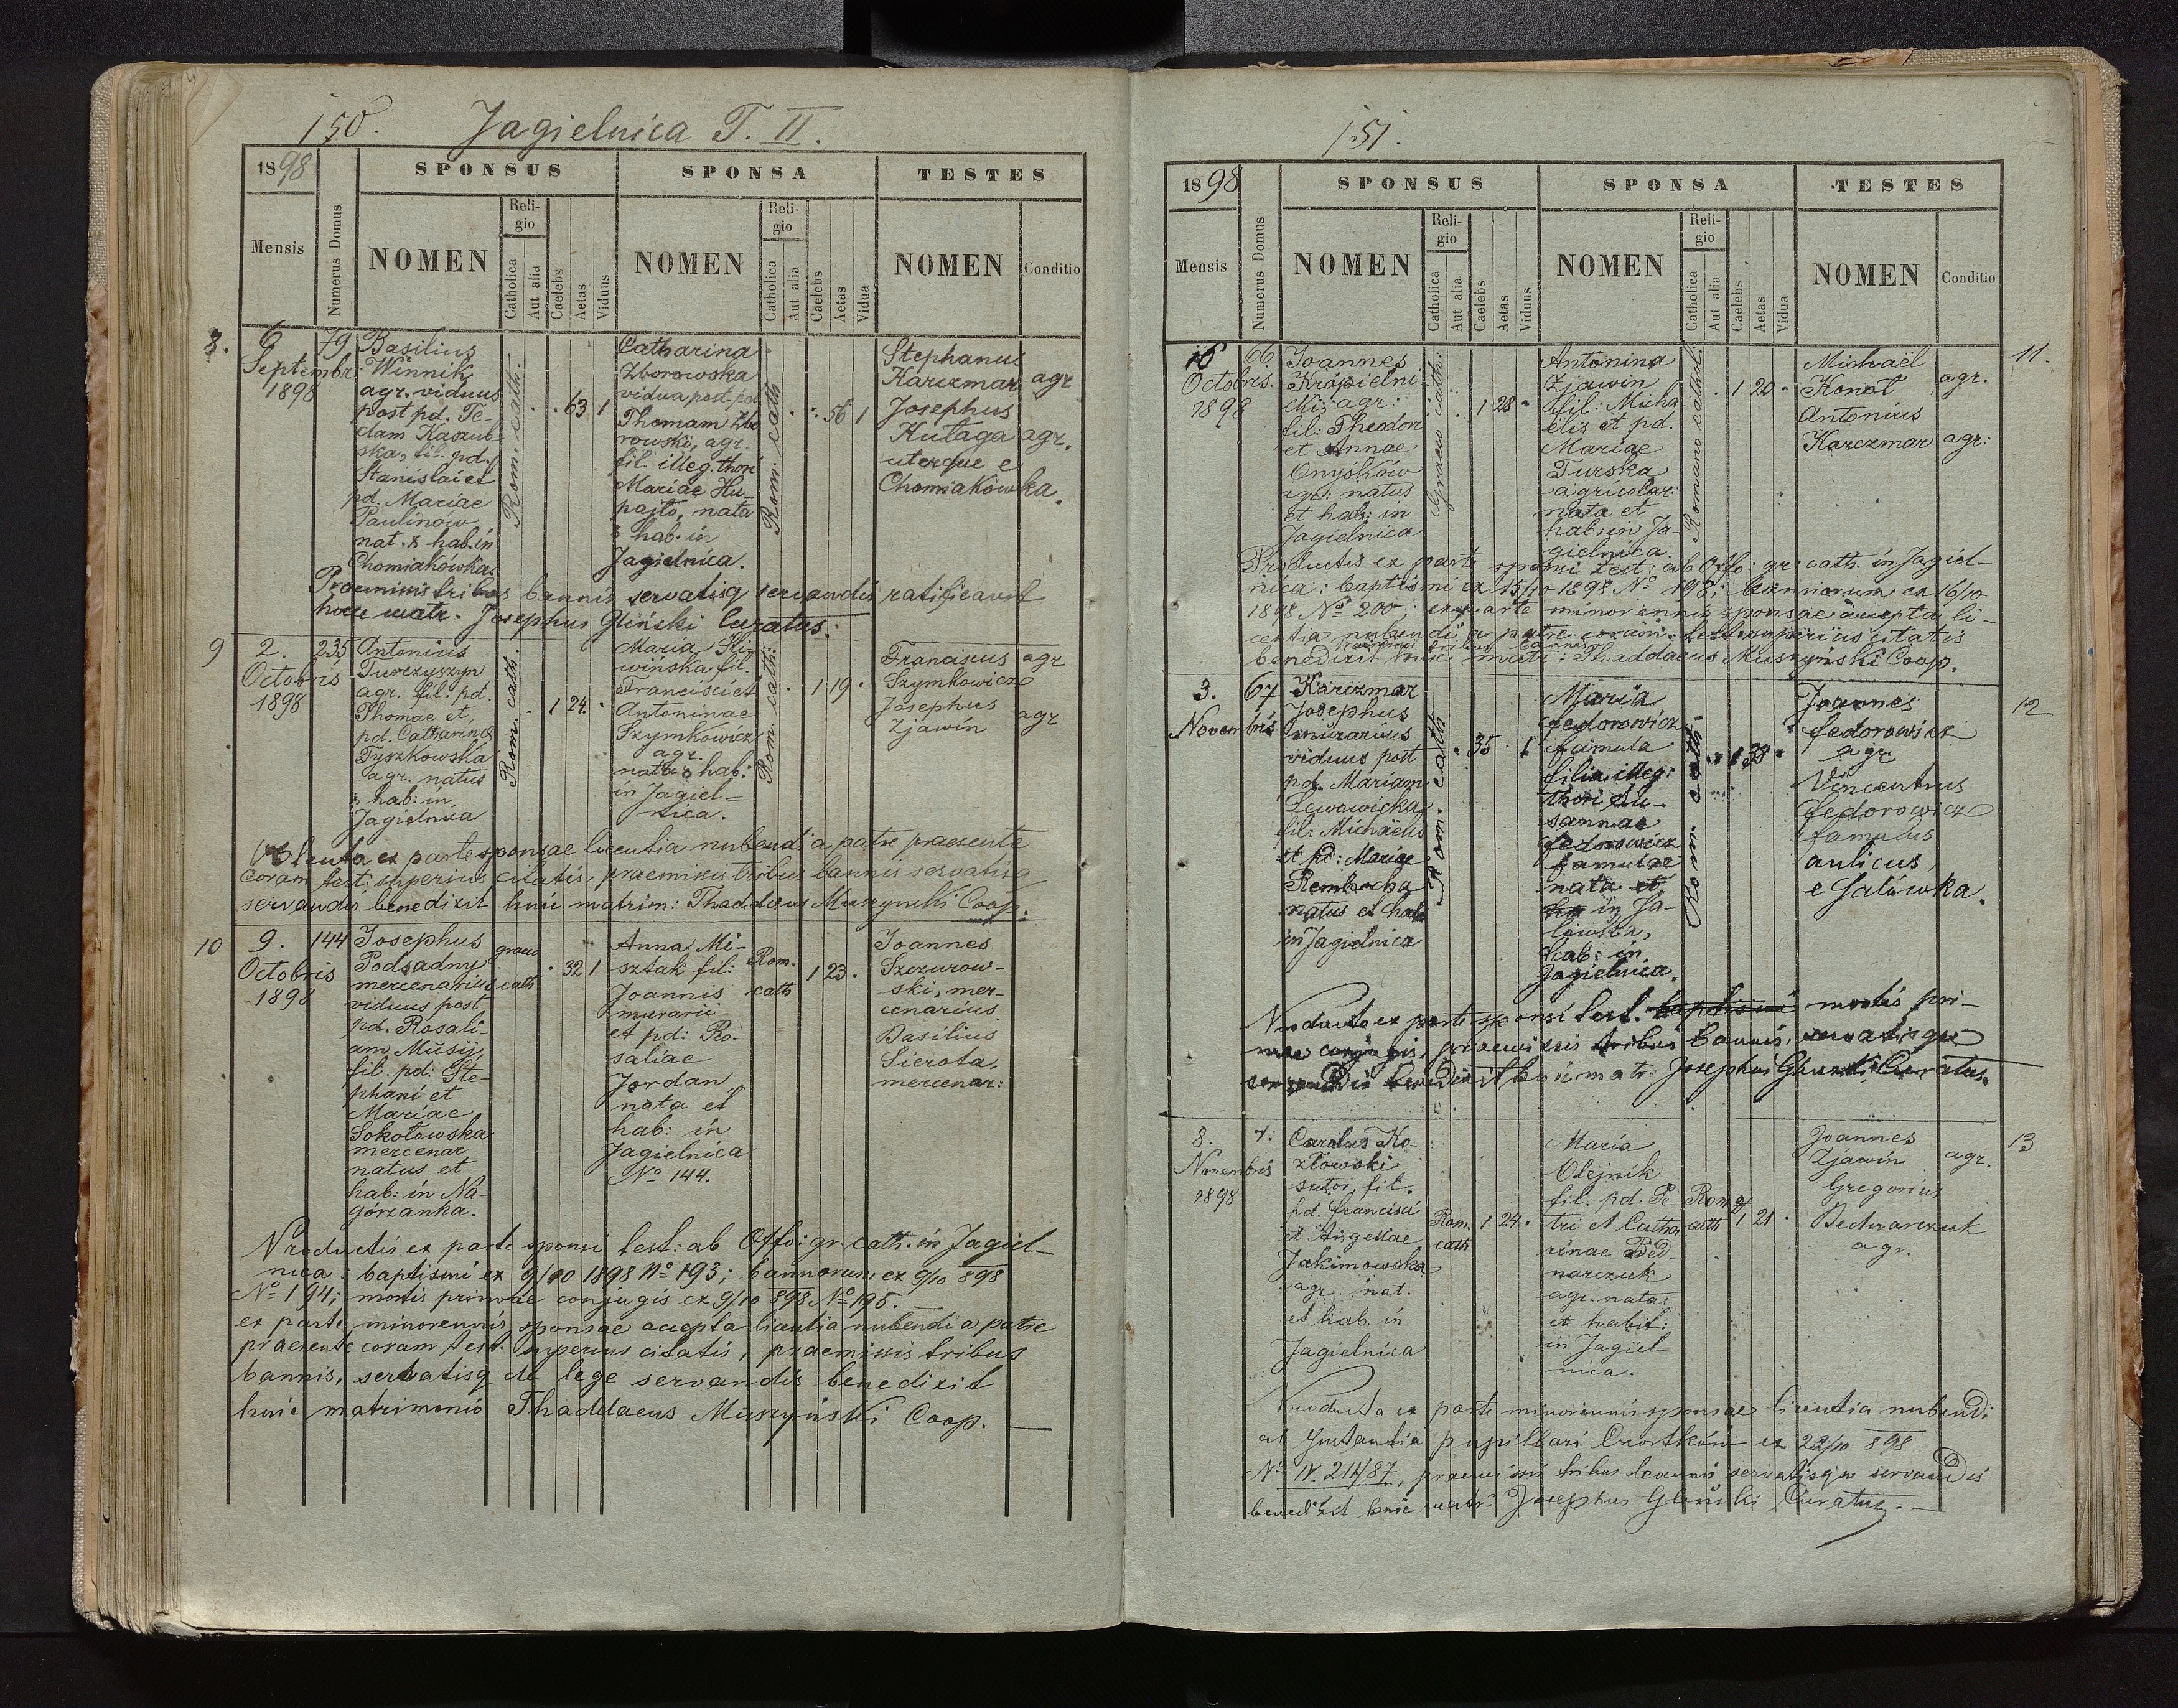 150.
Jagielnica T. II.
1898
SPONSUS
SPONSA
TESTES
Mensis
Numerus Domus
NOMEN
Religio
Catholica
Aut alia
Caelebs
Aetas
Viduus
NOMEN
Religio
Catholica
Aut alia
Caelebs
Aetas
Vidua
NOMEN
Conditio
8.
6
Septembr.
1898
79
Basilius
Winnik
agr. viduus
post pd. Te-
clam Kaszub-
ska, fil. pd.
Stanislai et
pd. Mariae
Paulinów
nat. & hab. in
Chomiakówka.
Rom. cath.
63 1
Catharina
Zborowska
vidua post pd.
Thomam Zbo
rowski, agr.
fil. illeg. thori
Mariae Hu-
pajło, nata
& hab. in
Jagielnica.
Rom. cath
56 1
Stephanus
Karczmar agr
Josephus
Kutaga agr.
uterque e
Chomiakówka.
Praemissis tribus bannis servatisq servandis ratificavit
hocce matr. Josephus Gliński Curatus.
9
2.
Octobris
1898
235
Antonius
Turczyszyn
agr. fil. pd.
Thomae et
pd. Catharinae
Tyszkowska
agr. natus
& hab: in
Jagielnica
Rom. cath.
1 24.
Maria Sli-
wińska fil.
Francisci et
Antoninae
Szymkowicz
agr.
nata & hab:
in Jagiel=
nica.
Rom. cath:
1 19.
Franciscus agr
Szymkowicz
Josephus
Zjawin agr
Obtenta ex parte sponsae licentia nubendi a patre praesente
coram test: superius citatis, praemissis tribus bannis servatisq
servandis benedixit huic matrim: Thaddaeus Muszyński Coop.
10
9.
Octobris
1898
144
Josephus
Podsadny
mercenarius
viduus post
pd. Rosali-
am Musij,
fil: pd: Ste-
phani et
Mariae
Sokołowska
mercenar
natus et
hab: in Na-
górzanka.
graeco
cath
32 1
Anna Mi-
sztak fil:
Joannis
murarii
et pd: Ro-
saliae
Jordan
nata et
hab: in
Jagielnica
No 144.
Rom.
cath
1 23.
Joannes
Szczurow-
ski, mer-
cenarius
Basilius
Sierota,
mercenar:
Productis ex parte sponsi test: ab Offoi gr. cath. in Jagiel-
nica: baptismi ex 9/10 1898 No 193; bannorum ex 9/10 898
No 194; mortis primae conjugis ex 9/10 898 No 195.
ex parte minorennis sponsae accepta licentia nubendi a patre
praesente coram test. superius citatis, praemissis tribus
bannis, servatisq de lege servandis benedixit
huic matrimonio Thaddaeus Muszyński Coop.
151.
1898
SPONSUS
SPONSA
TESTES
Mensis
Numerus Domus
NOMEN
Religio
Catholica
Aut alia
Caelebs
Aetas
Viduus
NOMEN
Religio
Catholica
Aut alia
Caelebs
Aetas
Vidua
NOMEN
Conditio
16
Octobris.
1898
66
Joannes
Krópielni
cki, agr:
fil: Theodori
et Annae
Onyśków
agr: natus
et hab: in
Jagielnica
Graeco cath:
1 28
Antonina
Zjawin
fil: Micha
elis et pd.
Mariae
Turska
agricolar:
nata et
hab: in Ja-
gielnica.
Romano cathol:
1 20
Michaël
Konot agr.
Antonius
Karczmar agr:
11.
Productis ex parte sponsi test: ab Offo: gr: cath. in Jagiel-
nica: baptismi ex 15/10 1898 No 198; bannorum ex 16/10
1898 No 200; ex parte minorennis sponsae accepta li-
centia nubendi a patre coram test. superius citatis
praemissis tribus bannis
benedixit huic matr: Thaddaeus Muszyński Coop.
3.
Novembris
67
Karczmar
Josephus
murarius
viduus post
pd. Mariam
Lewowicka
fil: Michaelis
et pd: Mariae
Rembacha
natus et hab
in Jagielnica
Rom. cath
35 1
Maria
Fedorowicz
famula
filia illeg:
thori Su-
sannae
Fedorowicz
famulae
nata et
in Ja-
łówka,
hab: in
Jagielnica.
Rom cath.
1 38
Joannes
Fedorowicz
agr
Vincentius
Fedorowicz
famulus
aulicus,
e Salówka.
12
Producto ex parte sponsi test. baptismi mortis pri-
mae conjugis, praemissis tribus bannis, servatisque
servandis benedixit huic matr: Josephus Gliński Curatus.
8.
Novembris
1898
7:
Carolus Ko-
złowski
sutor, fil.
pd. Francisci
et Angelae
Jakimowska
agr. nat.
et hab. in
Jagielnica
Rom.
cath
1 24.
Maria
Olejnik
fil. pd. Pe-
tri et Catha-
rinae Bed-
narczuk
agr. nata
et habit:
in Jagiel
nica.
Rom
cath
1 21
Joannes
Zjawin agr.
Gregorius
Bednarczuk
agr.
13
Producta ex parte minorennis sponsae licentia nubendi
ab Instantia pupillari Czortków ex 22/10 898
No IV. 214/87, praemissis tribus bannis servatisque servandis
benedixit huic matr: Josephus Gliński Curatus.